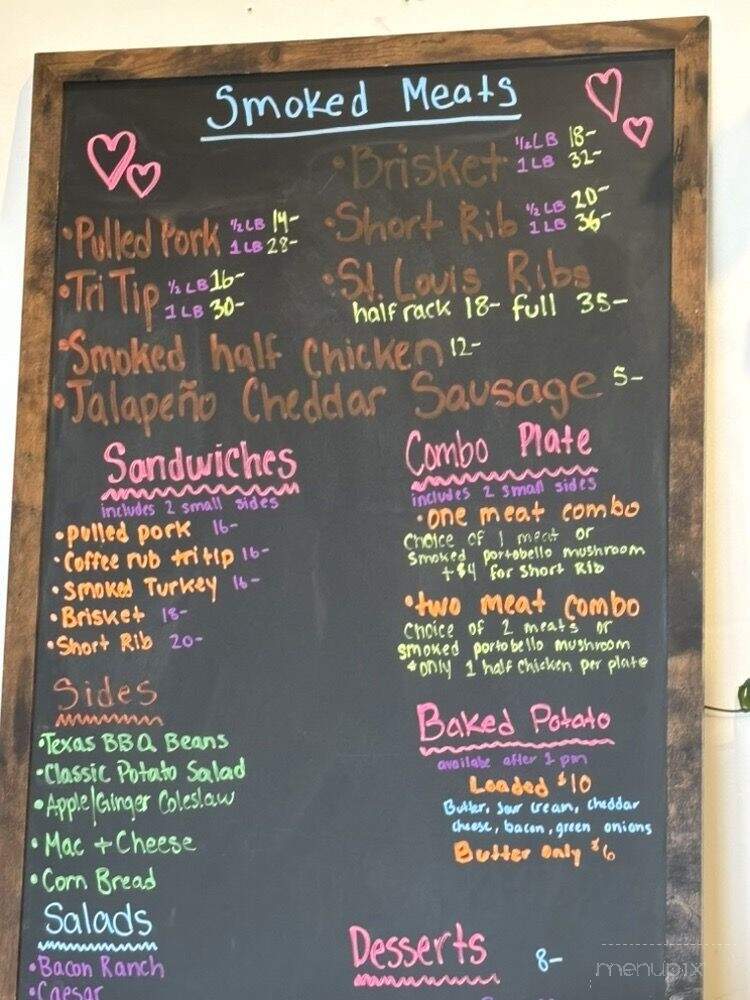 Smoked Meats
•Brisket ½LB 18-
1 LB 32-
•Pulled Pork ½LB 14-
1 LB 28-
•Short Rib ½ LB 20-
1 LB 36-
•Tri Tip ½ LB 16-
1 LB 30-
•St. Louis Ribs
half rack 18- full 35-
•Smoked half Chicken 12-
•Jalapeño Cheddar Sausage 5-
Sandwiches
includes 2 small sides
•pulled pork 16-
•Coffee rub tri tip 16-
•Smoked Turkey 16-
•Brisket 18-
•Short Rib 20-
Combo Plate
includes 2 small sides
•one meat combo
Choice of 1 meat or
Smoked portobello mushroom
+$4 for Short Rib
•two meat combo
Choice of 2 meats or
smoked portobello mushroom
*only 1 half chicken per plate
Sides
•Texas BBQ Beans
•Classic Potato Salad
•Apple/Ginger Coleslaw
•Mac + Cheese
•Corn Bread
Baked Potato
availabe after 1 pm
Loaded $10
Butter, Sour cream, cheddar
cheese, bacon, green onions
Butter only $6
Salads
•Bacon Ranch
•Caesar
Desserts 8-
menupix